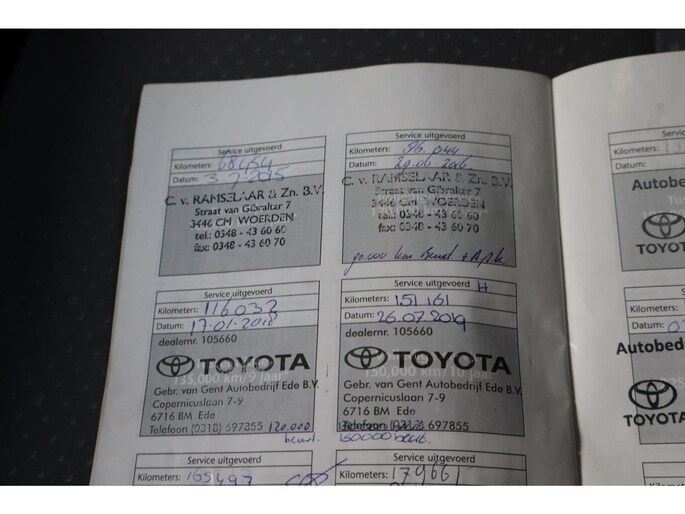 Service uitgevoerd
Kilometers: 68454
Datum: 3-7-2015
C. v. RAMSELAAR & Zn. B.V.
Straat van Gibraltar 7
3446 CM WOERDEN
tel.: 0348 - 43 60 60
fax: 0348 - 43 60 70
Service uitgevoerd
Kilometers: 86.044
Datum: 29-06-2016
C. v. RAMSELAAR & Zn. B.V.
Straat van Gibraltar 7
3446 CM WOERDEN
tel.: 0348 - 43 60 60
fax: 0348 - 43 60 70
90.000 km Beurt + A.p.k.
Service uitgevoerd
Kilometers: 116032
Datum: 17-01-2018
dealernr. 105660
TOYOTA
135,000 km/9 jaar
Gebr. van Gent Autobedrijf Ede B.V.
Copernicuslaan 7-9
6716 BM Ede
Telefoon (0318) 697855 120.000
beurt.
Service uitgevoerd H
Kilometers: 151 161
Datum: 26.07.2019
dealernr. 105660
TOYOTA
150,000 km/10 jaar
Gebr. van Gent Autobedrijf Ede B.V.
Copernicuslaan 7-9
6716 BM Ede
Telefoon 697855
150000 beurt.
Service uitgevoerd
Kilometers: 165497
Service uitgevoerd
Kilometers: 179661
Service
Kilometers:
Datum:
Autobe
TOYO
Kilometers:
Datum:
Autobed
TOYOT
Kilometers: